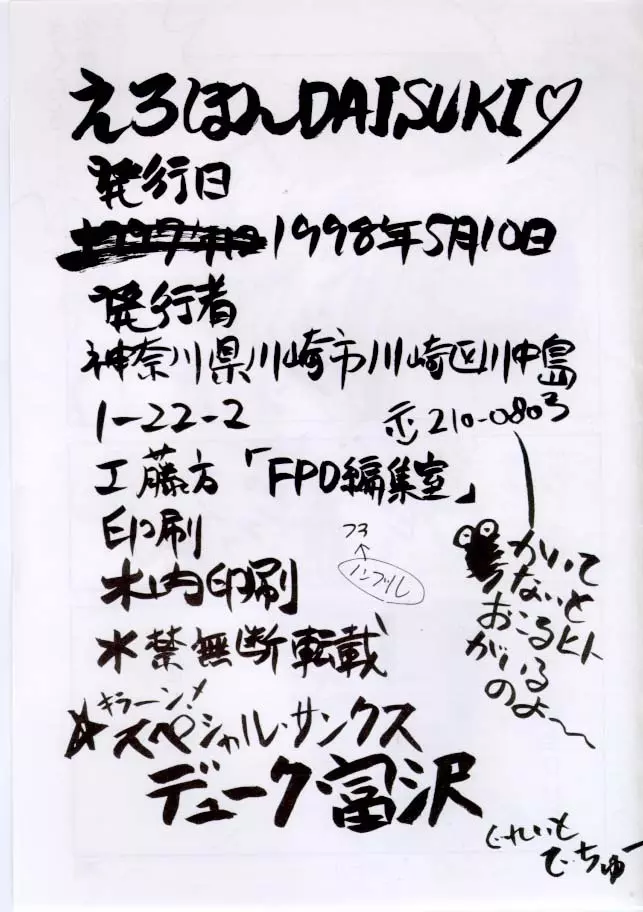 えろほんDAISUKI♡
発行日
1998年5月10日
発行者
神奈川県川崎市川崎区川中島
1-22-2 〒210-0803
工藤方「FPO編集室」
印刷
木内印刷
永禁無断転載
キラーン!
☆スペシャル・サンクス
デューク・富沢
73
ノンブル
かいて
ないと
おこるヒト
がいる
のよ〜
ぐれいと
でちゅー